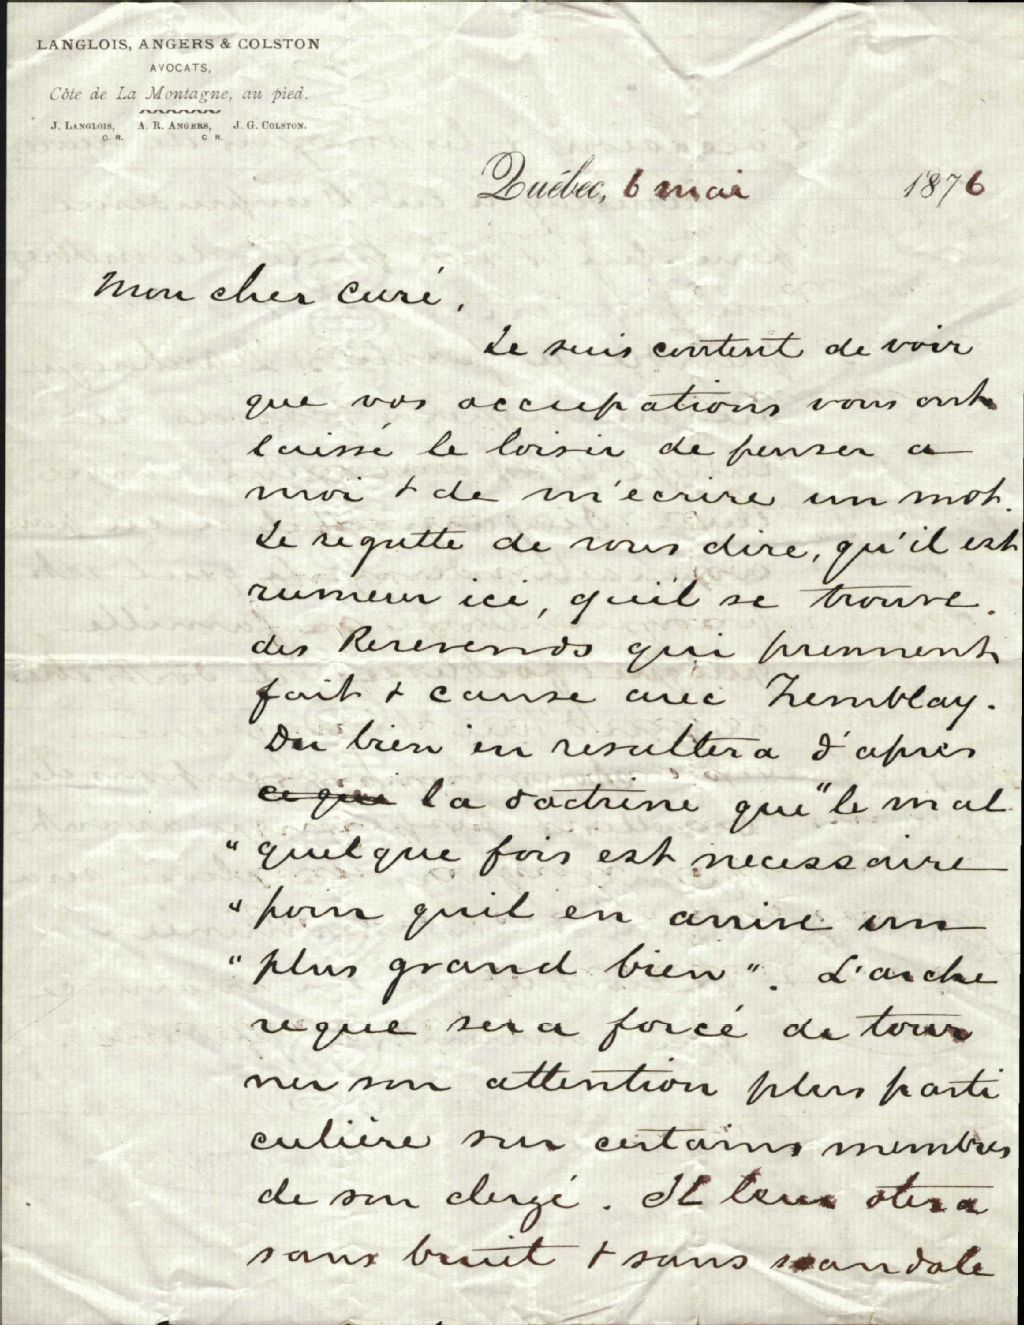 LANGLOIS, ANGERS & COLSTON
AVOCATS,
Côte de La Montagne, au pied.
J. LANGLOIS, A. R. ANGERS, J. G. COLSTON.
C. R. C. R.
Québec, 6 mai 1876
Mon cher curé,
Je suis content de voir
que vos occupations vous ont
laissé le loisir de penser a
moi & de m'ecrire un mot.
Je regrette de vous dire, qu'il est
rumeur ici, quil se trouve
des Reverends qui prennent
fait & cause avec Tremblay.
Du bien en resultera d'apres
ce qui la doctrine que "le mal
" quelque fois est necessaire
" pour quil en arrive un
" plus grand bien". L'arche
veque sera forcé de tour
ner son attention plus parti
culière sur certains membres
de son clergé. Il leur otera
sans bruit & sans scandale